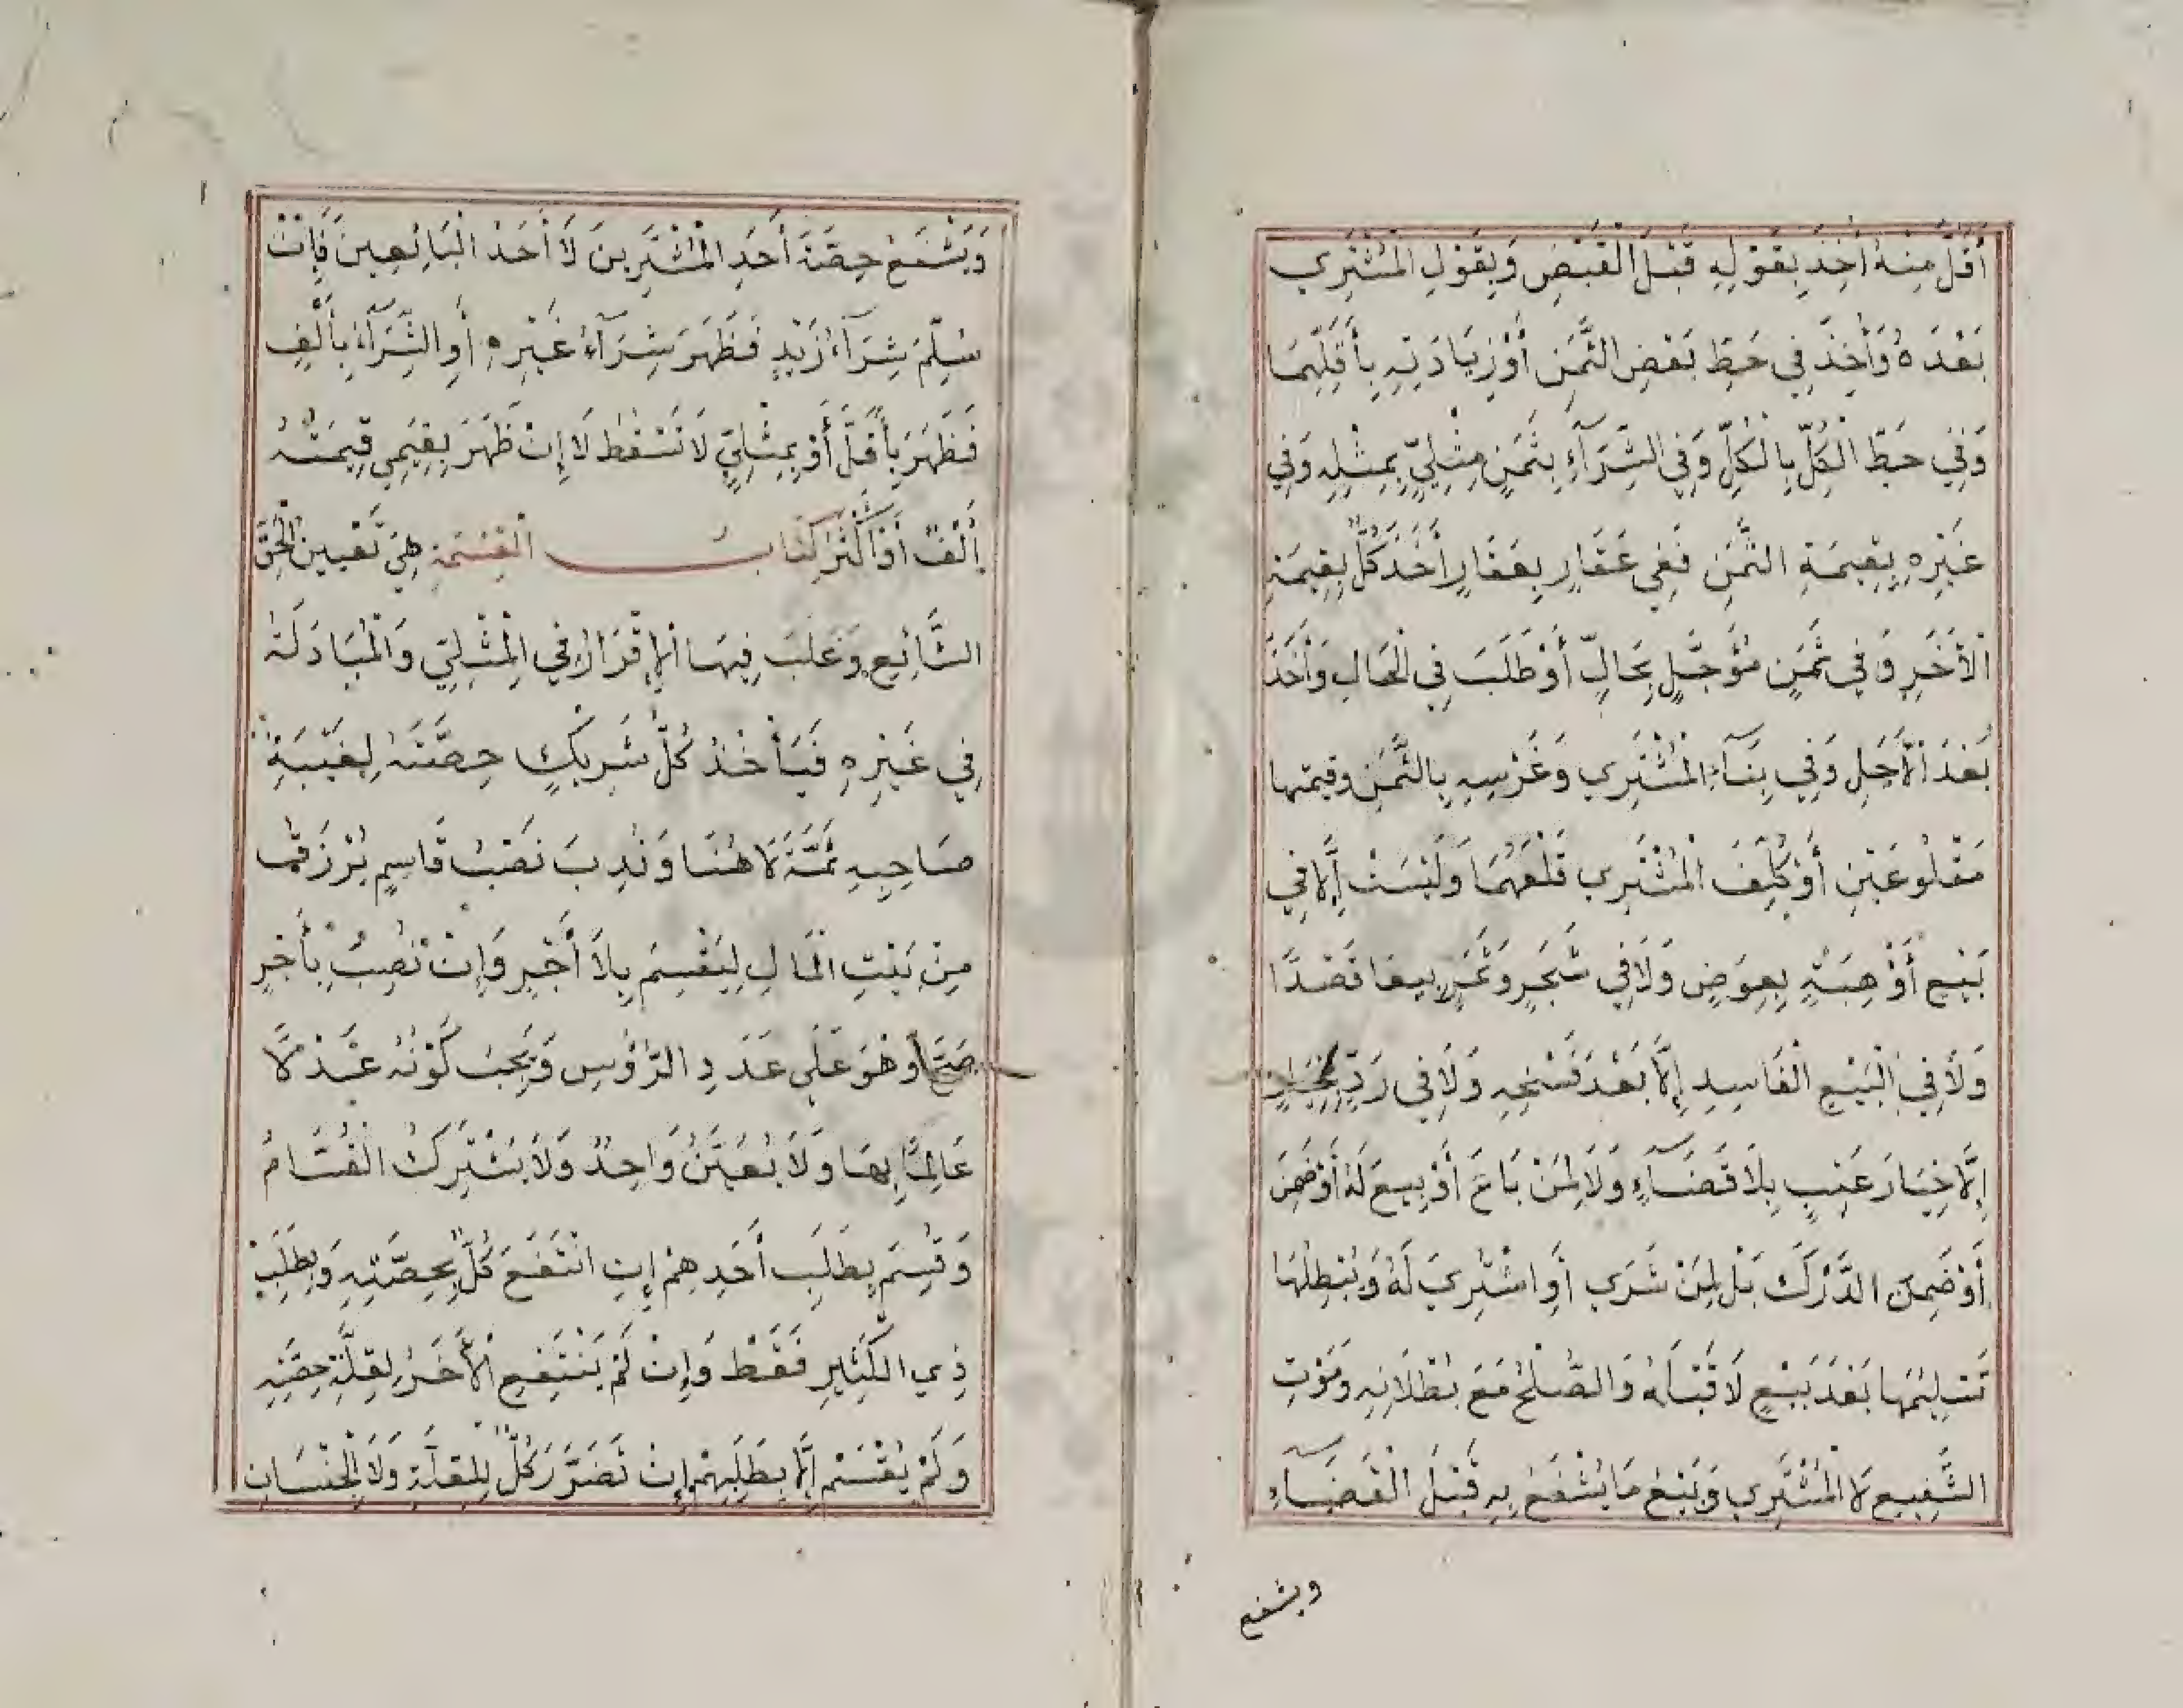 أَقَلَّ مِنْهُ أَخَذَ بِقَوْلِهِ قَبْلَ الْقَبْضِ وَبِقَوْلِ الْمُشْتَرِي
بَعْدَهُ وَأَخَذَ فِي حَطِّ بَعْضِ الثَّمَنِ أَوْ زِيَادَتِهِ بِأَقَلِّهِمَا
وَفِي حَطِّ الْكُلِّ بِالْكُلِّ وَفِي الشِّرَآءِ بِثَمَنٍ مِثْلِيٍّ بِمِثْلِهِ وَفِي
غَيْرِهِ بِقِيمَةِ الثَّمَنِ فَفِي عَقَارٍ بِعَقَارٍ أَخَذَ كُلٌّ بِقِيمَةِ
الْأَخَرِ وَفِي ثَمَنٍ مُؤَجَّلٍ بِحَالٍّ أَوْ طَلَبَ فِي الْحَالِ وَأَخَذَ
بَعْدَ الْأَجَلِ وَفِي بِنَآءِ الْمُشْتَرِي وَغَرْسِهِ بِالثَّمَنِ وقيمتها
مَقْلُوعَيْنِ أَوْ كُلِّفَ الْمُشْتَرِي قَلْعَهُمَا وَلَيْسَتْ إِلَّا فِي
بَيْعٍ أَوْ هِبَةٍ بِعِوَضٍ وَلَا فِي شَجَرٍ وَثَمَرٍ بيعا قَصْدًا
وَلَا فِي الْبَيْعِ الْفَاسِدِ إِلَّا بَعْدَ فَسْخِهِ وَلَا فِي رَدٍّ بِخِيَارٍ
إِلَّا خِيَارَ عَيْبٍ بِلَا قَضَآءٍ وَلَا لِمَنْ بَاعَ أَوْ بِيعَ لَهُ أَوْ ضَمِنَ
أَوْ ضَمِنَ الدَّرَكَ بَلْ لِمَنْ شَرَي أَوِ اشْتُرِيَ لَهُ وَيُبْطِلُهَا
تَسْلِيمُهَا بَعْدَ بَيْعٍ لَا قَبْلَهُ وَالصُّلْحُ مَعَ بُطْلَانِهِ وَمَوْتِ
الشَّفِيعِ لَا الْمُشْتَرِي وَبَيْعُ مَا يُشْفَعُ بِهِ قَبْلَ الْقَضَآءِ
ويشفع
وَيَشْفَعُ حِصَّةَ أَحَدِ الْمُشْتَرِينَ لَا أَحَدُ الْبَائِعِينَ فَإِنْ
سُلِّمَ شِرَآءُ زَيْدٍ فَظَهَرَ شِرَآءُ غَيْرِهِ أَوِ الشِّرَآءُ بِأَلْفٍ
فَظَهَرَ بِأَقَلَّ أَوْ بِمِثْلِيٍّ لَا تَسْقُطُ لَا إِنْ ظَهَرَ بِقِيَمِي قِيمَتُهُ
أَلْفٌ أَوْ أَكْثَرَ كِتَابُ الْقِسْمَةِ هِيَ تَعْيِينُ الْحَقِّ
الشَّائِعِ وَغَلَبَ فِيهَا الْإِقْرَارُ فِي الْمِثْلِيّ وَالْمُبَادَلَةُ
فِي غَيْرِهِ فَيَأْخُذُ كُلُّ شَرِيكٍ حِصَّتَهُ لِغَيْبَةِ
صَاحِبِهِ ثَمَّةَ لَا هُنَا وَنُدِبَ نَصْبُ قَاسِمٍ يُرْزَقُ
مِنْ بَيْتِ الْمَالِ لِيَقْسِمَ بِلَا أَجْرٍ وَإِنْ نُصِبَ بِأَجْرٍ
صَحَّ وَهُوَ عَلَي عَدَدِ الرُّؤُسِ وَيَجِبُ كَوْنُهُ عَدْلًا
عَالِمًا بِهَا وَلَا يُعَيَّنُ وَاحِدٌ وَلَا يَشْتَرِكُ الْقُسَّامُ
وَقُسِمَ بِطَلَبِ أَحَدِهِمْ إِنِ انْتَفَعَ كُلٌّ بِحِصَّتِهِ وَبِطَلَبِ
ذِي الْكَثِيرِ فَقَطْ وَإِنْ لَمْ يَنْتَفِعِ الْأَخَرُ لِقِلَّةِ حِصَّتِهِ
وَلَمْ يُقْسَمْ إِلَّا بِطَلَبِهِمْ إِنْ تَضَرَّرَ كُلٌّ لِلْقِلَّةِ وَلَا الْجِنْسَانِ